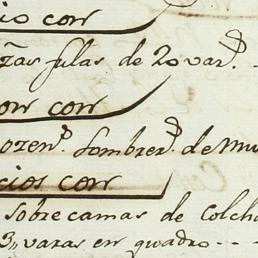 cio con
zas sulas de 20 var.s
con con
dozen.s Sombrer.s de Mu
cios con
sobrecamas de Colcha
3 varas en quadro - - -